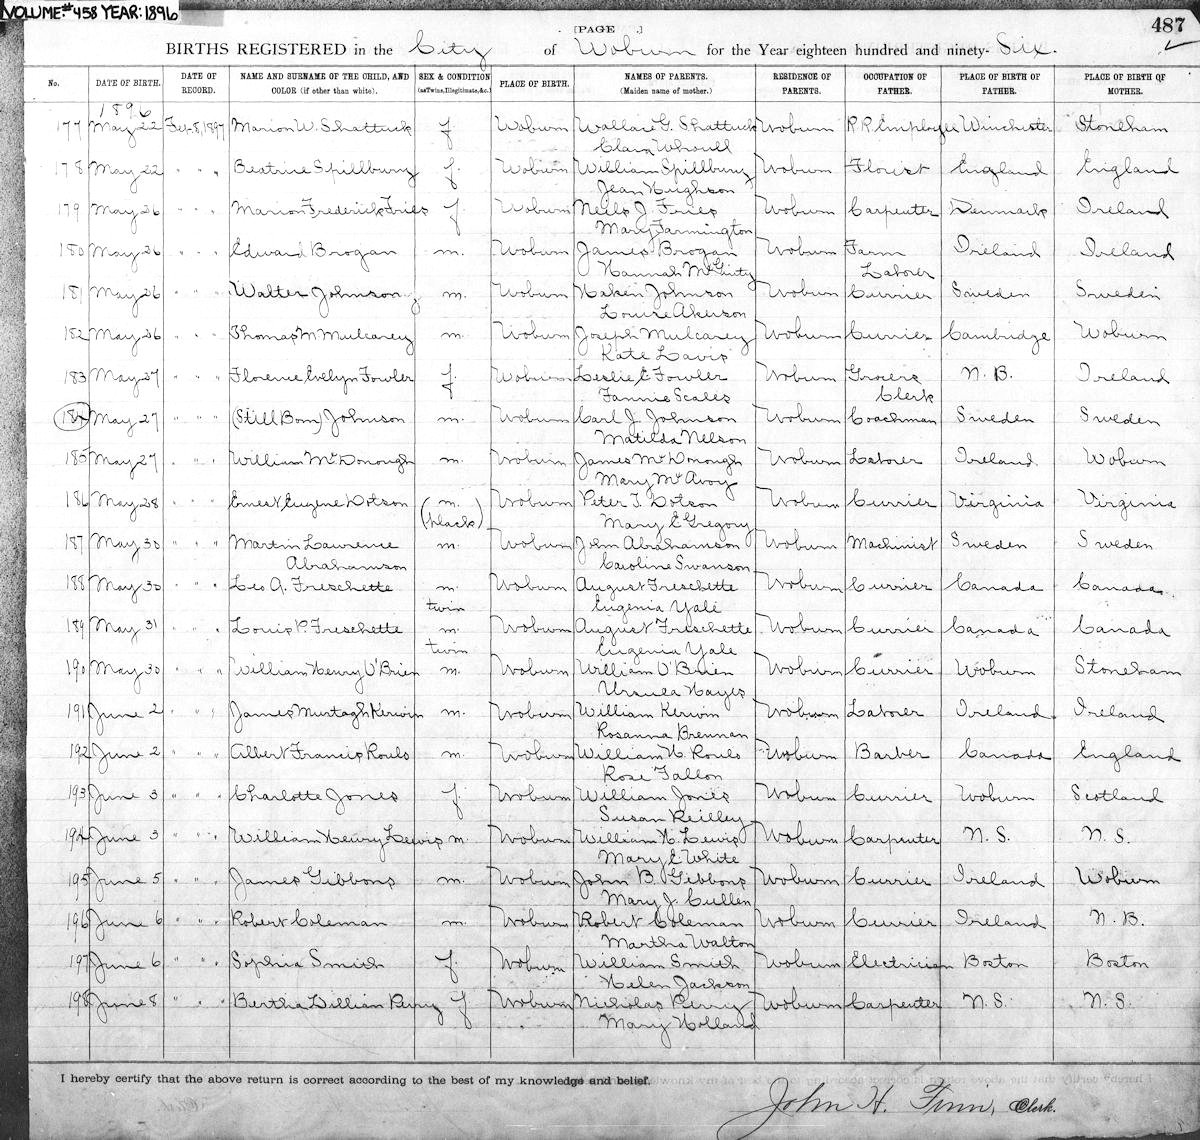 VOLUME:#458 YEAR:1896
[PAGE .]
487
BIRTHS REGISTERED in the City of Woburn for the Year eighteen hundred and ninety- Six.
No. DATE OF BIRTH. DATE OF RECORD. NAME AND SURNAME OF THE CHILD, AND COLOR (if other than white). SEX & CONDITION (as Twins, Illegitimate, &c.) PLACE OF BIRTH. NAMES OF PARENTS. (Maiden name of mother.) RESIDENCE OF PARENTS. OCCUPATION OF FATHER. PLACE OF BIRTH OF FATHER. PLACE OF BIRTH OF MOTHER.
1896
177 May 22 Feb. 8, 1897 Marion W. Shattuck f Woburn Wallace G. Shattuck Woburn R.R. Employee Winchester Stoneham
Clara
178 May 22 " " " Beatrice Spillbury f. Woburn William Spillbury Woburn Florist England England
Jean Hughson
179 May 26 " " " Marion Frederick Fries f Woburn Neils J. Fries Woburn Carpenter Denmark Ireland
Mary Farmington
180 May 26 " " " Edward Brogan m. Woburn James Brogan Woburn Farm Ireland Ireland
Hannah McGinty Laborer
181 May 26 " " " Walter Johnson m. Woburn Haken Johnson Woburn Currier Sweden Sweden
Louise Akerson
182 May 26 " " " Thomas M. Mulcarey m. Woburn Joseph Mulcarey Woburn Currier Cambridge Woburn
Kate Davis
183 May 27 " " " Florence Evelyn Fowler f. Woburn Leslie E. Fowler Woburn Grocers N. B. Ireland
Fannie Scales Clerk
184 May 27 " " " (Still Born) Johnson m. Woburn Carl J. Johnson Woburn Coachman Sweden Sweden
Matilda Nelson
185 May 27 " " " William McDonough m. Woburn James McDonough Woburn Laborer Ireland Woburn
Mary McAvoy
186 May 28 " " " Ernest Eugene Dotson (m. Woburn Peter T. Dotson Woburn Currier Virginia Virginia
black) Mary E Gregory
187 May 30 " " " Martin Lawrence m. Woburn John Abrahamson Woburn Machinist Sweden Sweden
Abrahamson Caroline Swanson
188 May 30 " " " Leo A. Freschette m. Woburn August Freschette Woburn Currier Canada Canada
twin Eugenia Yale
189 May 31 " " " Louis P. Freschette m. Woburn August Freschette Woburn Currier Canada Canada
twin Eugenia Yale
190 May 30 " " " William Henry O'Brien m. Woburn William O'Brien Woburn Currier Woburn Stoneham
Ursula Hayes
191 June 2 " " " James Murtagh Kerwin m. Woburn William Kerwin Woburn Laborer Ireland Ireland
Rosanna Brennan
192 June 2 " " " Albert Francis Rouls m. Woburn William H. Rouls Woburn Barber Canada England
Rose Fallon
193 June 3 " " " Charlotte Jones f. Woburn William Jones Woburn Currier Woburn Scotland
Susan Reilley
194 June 3 " " " William Henry Lewis m. Woburn William H. Lewis Woburn Carpenter N. S. N. S.
Mary E White
195 June 5 " " " James Gibbons m. Woburn John B. Gibbons Woburn Currier Ireland Woburn
Mary J. Cullen
196 June 6 " " " Robert Coleman m. Woburn Robert Coleman Woburn Currier Ireland N. B.
Martha Walton
197 June 6 " " " Sophia Smith f. Woburn William Smith Woburn Electrician Boston Boston
Helen Jackson
198 June 8 " " " Bertha Lillian Perry f Woburn Nicholas Perry Woburn Carpenter N. S. N. S.
Mary Holland
I hereby certify that the above return is correct according to the best of my knowledge and belief.
John H. Finn, Clerk.